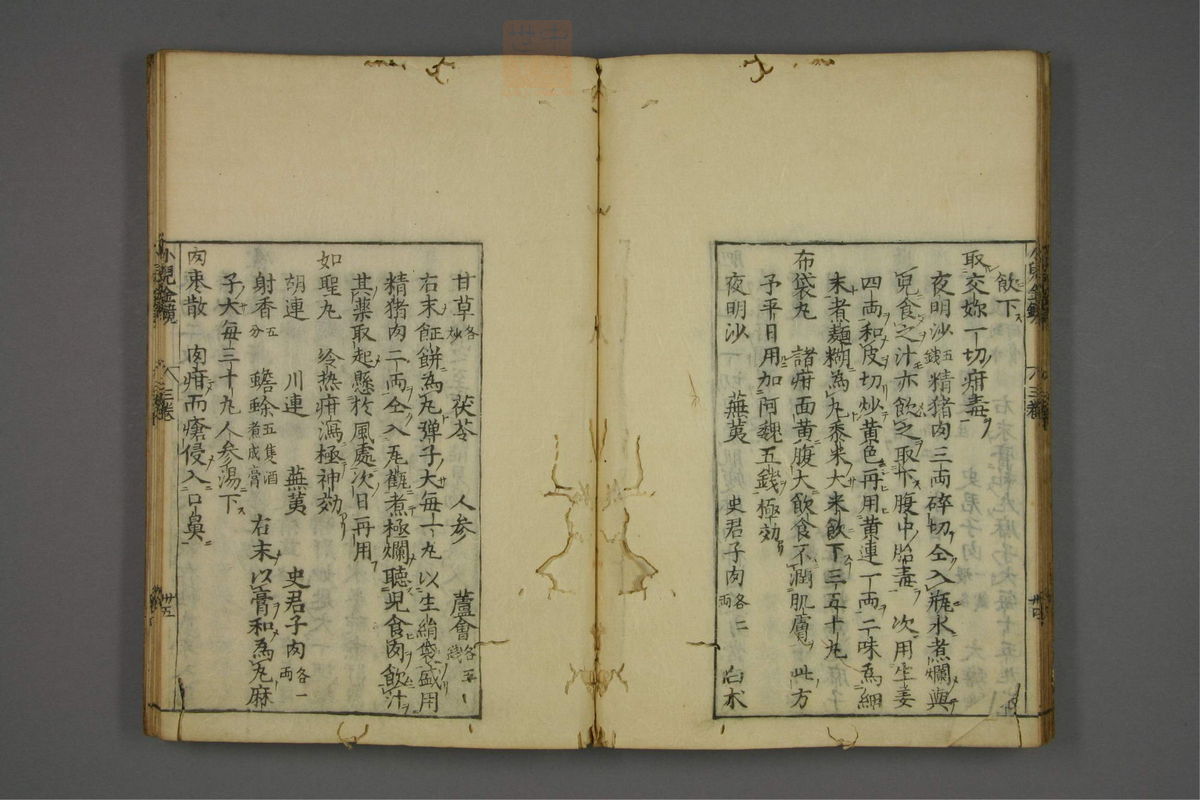 飲下
取交妳一切疳毒
夜明沙五錢精猪肉三両碎切仝入瓶水煮爛與
兒食之汁亦飲之取下腹中胎毒次用生姜
四両和皮切炒黄色再用黄連一両二味為細
末煮麺糊為丸黍米大米飲下三五十丸
布袋丸 諸疳面黄腹大飲食不潤肌膚此方
予平日用加阿魏五錢極効
夜明沙 蕪荑 史君子肉各二両 白朮
甘草各炒 茯苓 人参 蘆會各五錢
右末 餅為丸弾子大毎一丸以生絹袋盛用
精猪肉二両仝入瓦觀煮極爛聽児食肉飲汁
其薬取起懸於風處次日再用
如聖丸 冷热疳瀉極神効
胡連 川連 蕪荑 史君子肉各一両
射香五分 蟾蜍五隻酒煮成膏 右末以膏和為丸麻
子大毎三十丸人参湯下
肉枣散 肉疳而瘡侵入口鼻